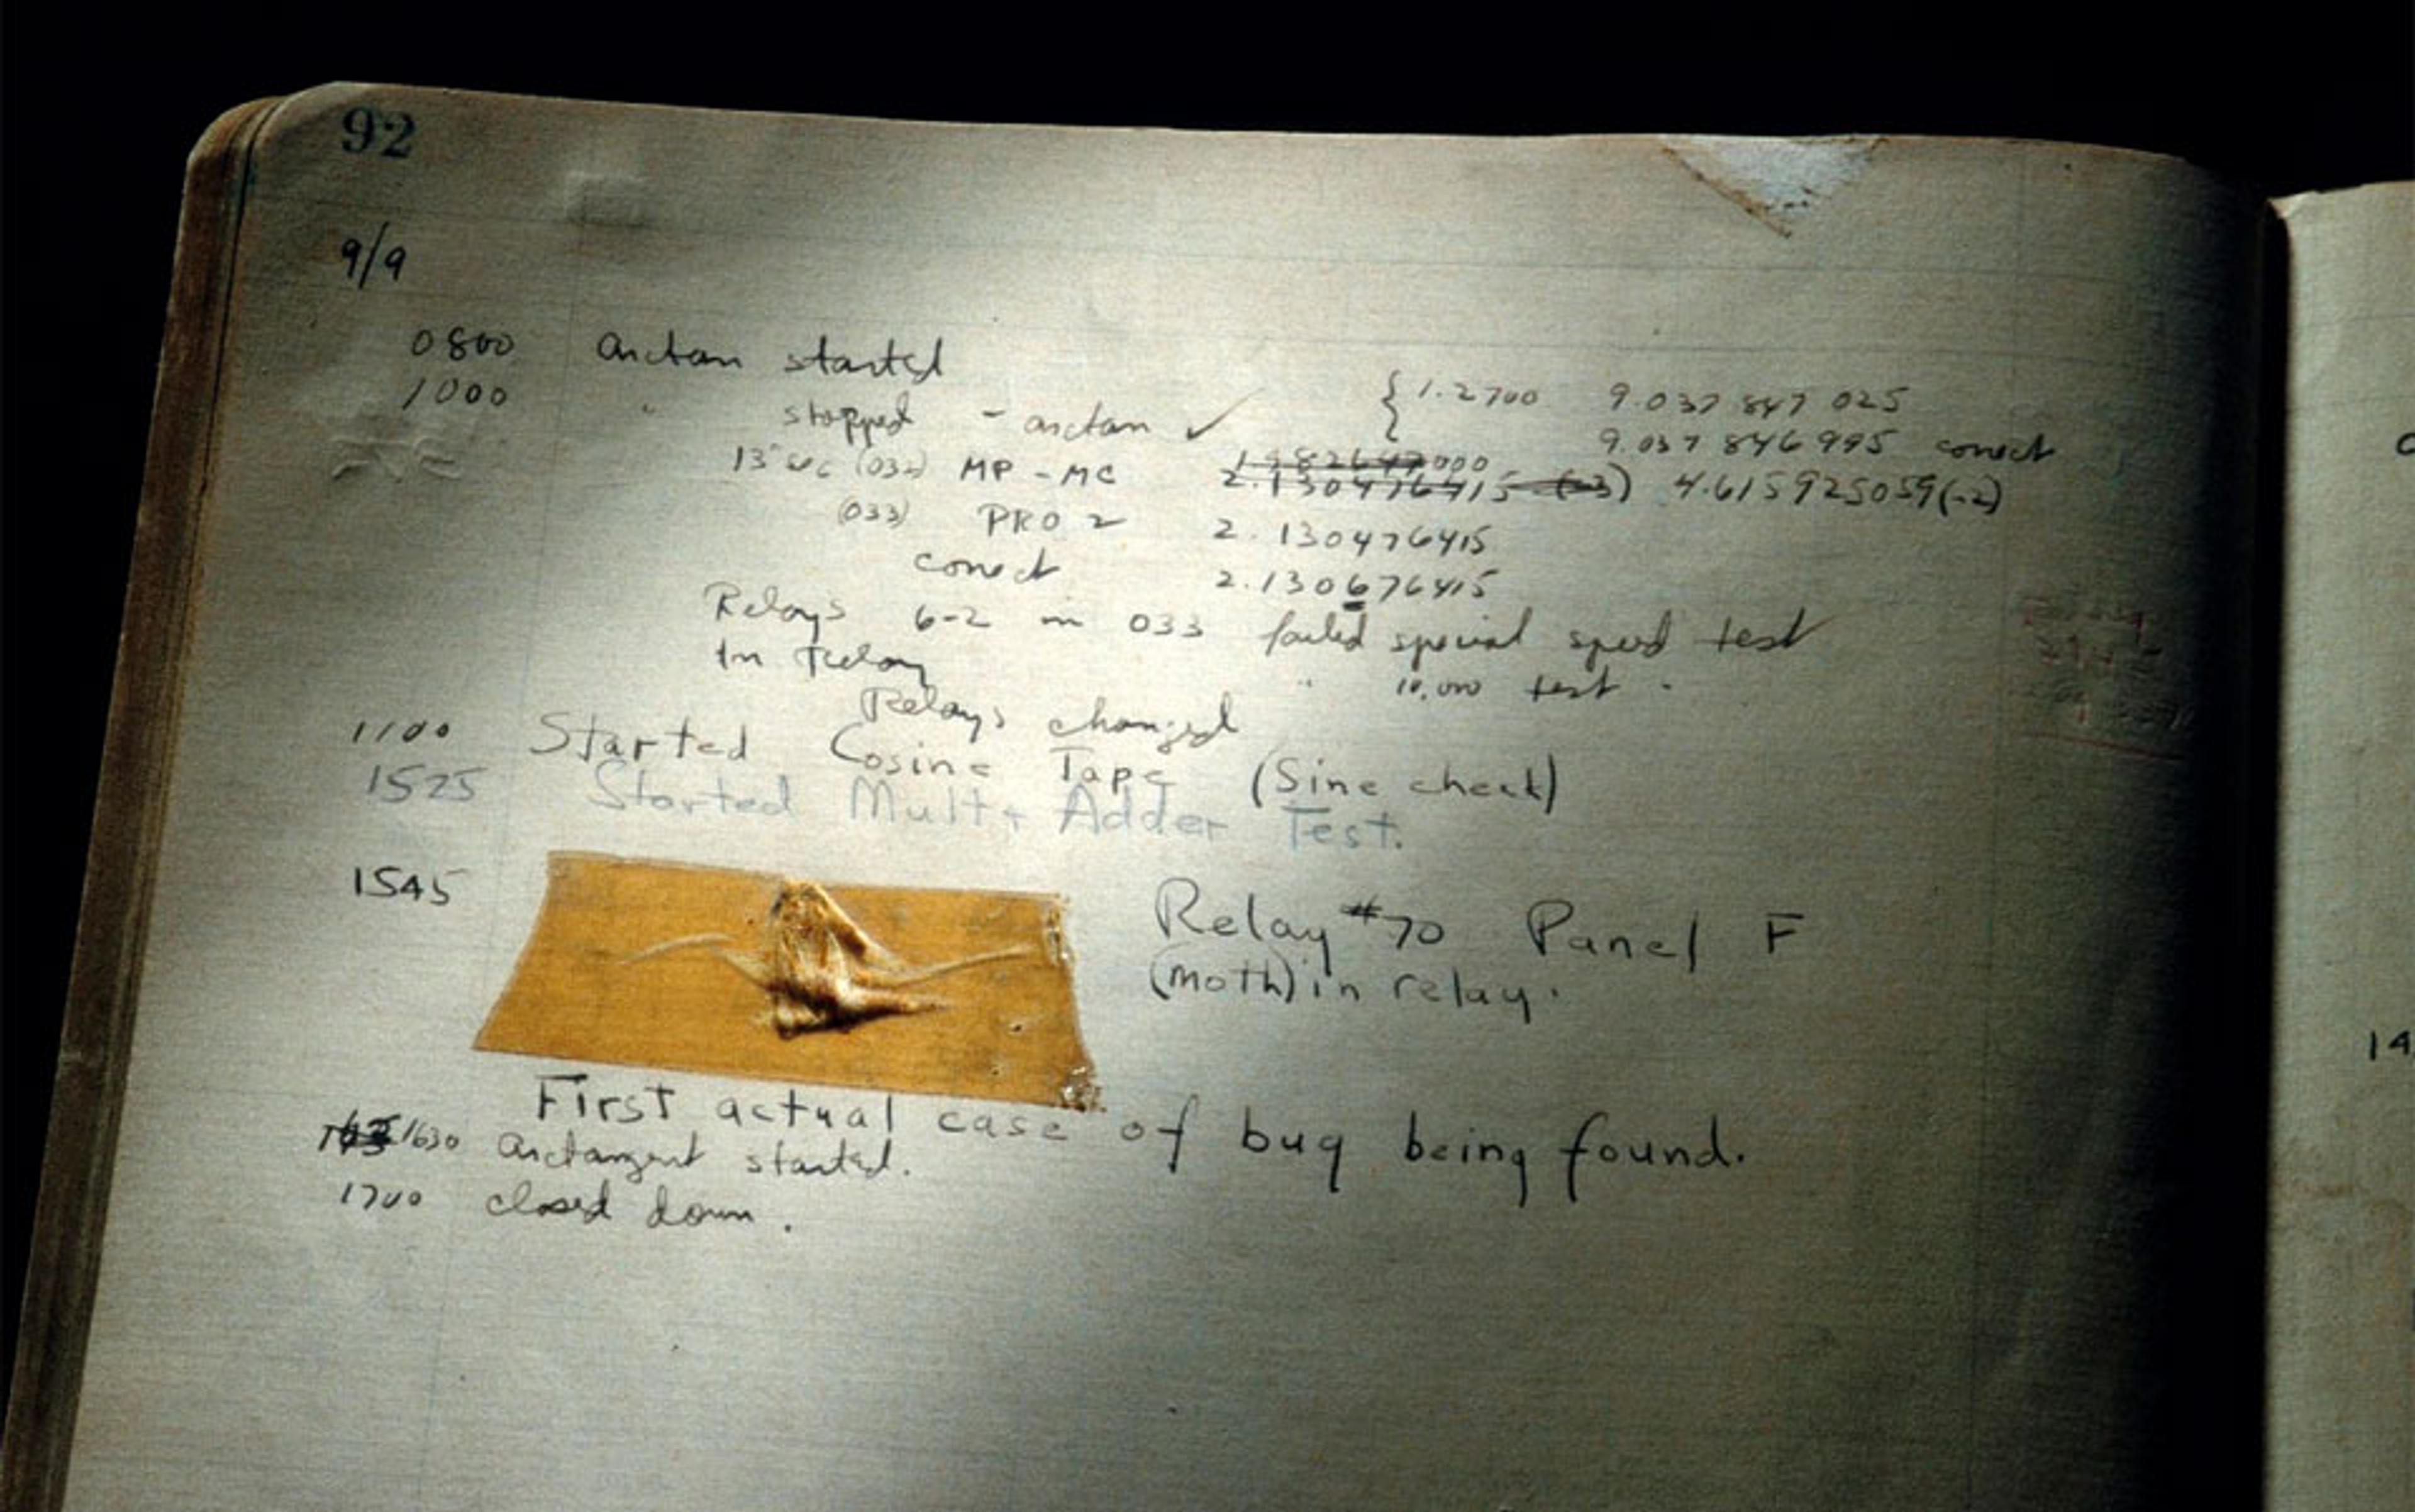 92
9/9
0800 arctan started
1000 " stopped - arctan ✓ { 1.2700 9.037 847 025
9.037 846 995 conect
13"uc (032) MP - MC 1.982647000
2.130476415 (-3) 4.615925059(-2)
(033) PRO 2 2.130476415
conect 2.130676415
Relays 6-2 in 033 failed special speed test
In Relay " 10,000 test.
Relays changed
1100 Started Cosine Tape (Sine check)
1525 Started Mult+ Adder Test.
1545 Relay #70 Panel F
(moth) in relay.
First actual case of bug being found.
1630 arctangent started.
1700 closed down.
14